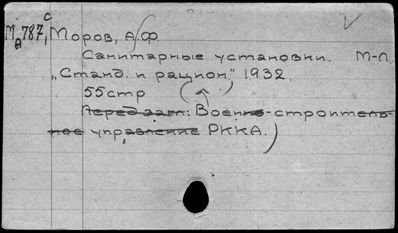 М 787, с Моров, А.Ф.
А
Санитарные установки. М-Л.
„Станд. и рацион." 1932.
55стр
Перед загл: Военно-строитель-
ное управление РККА.)